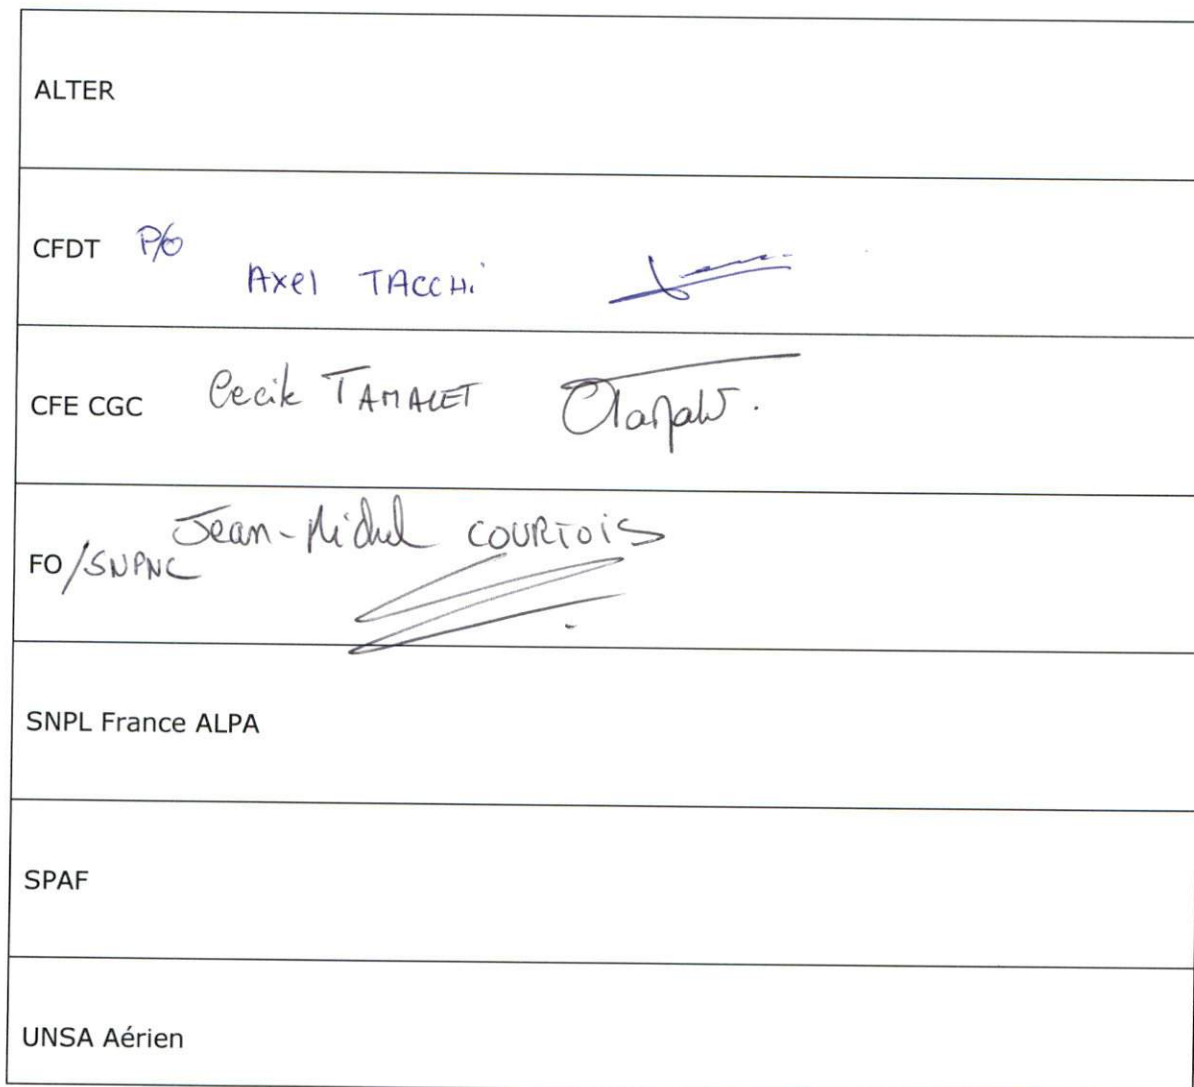 ALTER
CFDT P/O
Axel TACCHi
CFE CGC Cecile TAMALET
Jean-Michel COURTOIS
FO /SNPNC
SNPL France ALPA
SPAF
UNSA Aérien